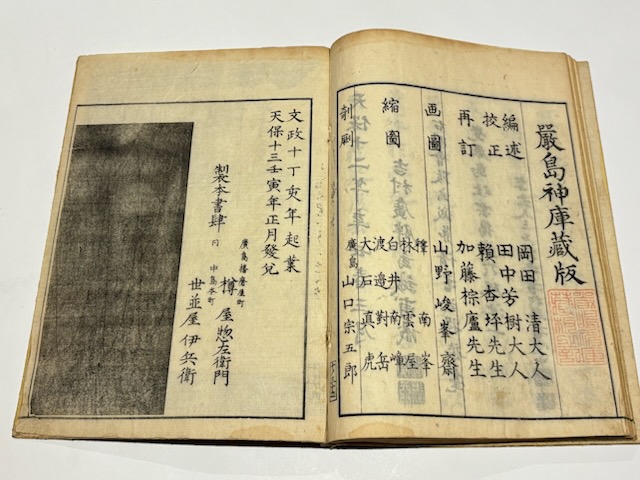 嚴島神庫藏版
編述 岡田清大人
校正 田中芳樹大人
頼杏坪先生
再訂 加藤棕廬先生
画圖 山野峻峯齋
縮圖 釋南峯
林雲屋
白井南嶂
渡邉對岳
大石真虎
剞劂 廣島 山口宗五郎
文政十丁亥年起業
天保十三壬寅年正月發兌
製本書肆
廣島播磨屋町
樽屋惣左衛門
仝 中島本町
世並屋伊兵衛